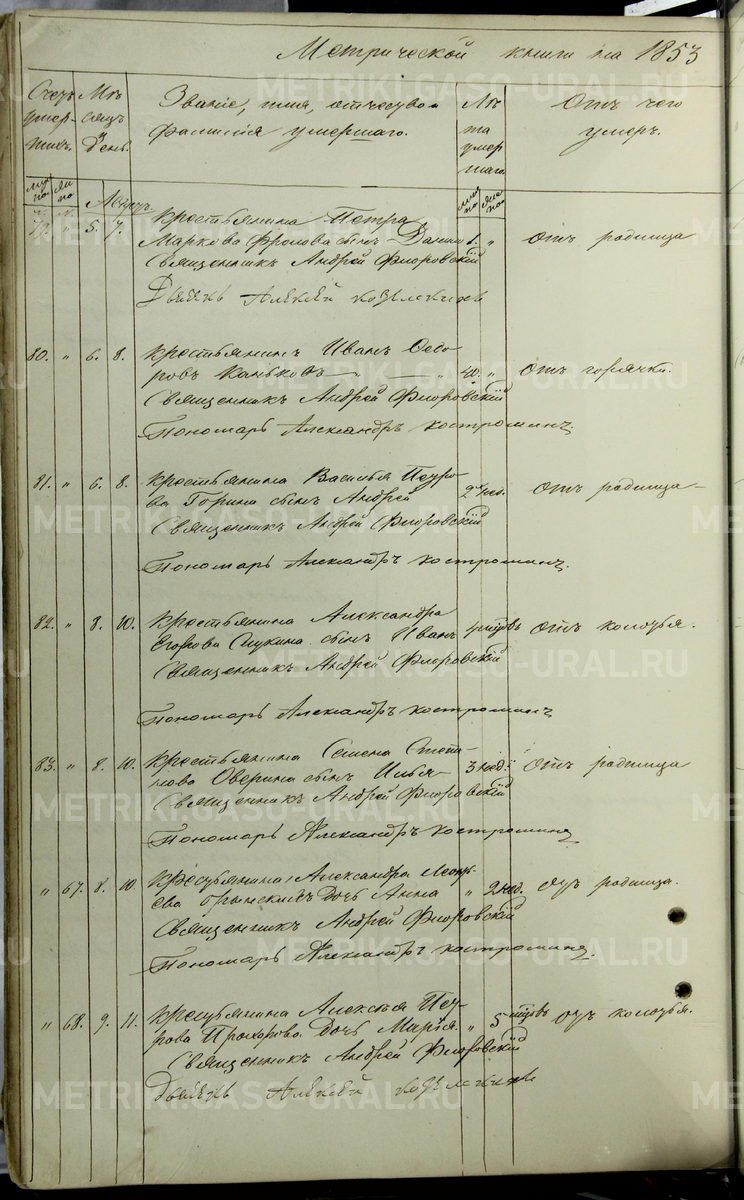 Метрической книги на 1853
Счетъ умер-шихъ. Мѣсяцъ и День. Званіе, имя, отчество и фамилія умершаго. Лѣта умершаго. Отъ чего умеръ.
муж. по. жен. по. муж. по. жен. по.
Мартъ.
79. „ 5. 7. Крестьянина Петра
Маркова Фролова сынъ Данило 1. „ отъ родимца
Священникъ Андрей Флоровскій
Дьячекъ Алексѣй
80. „ 6. 8. Крестьянинъ Иванъ Ѳедо-
ровъ Каньковъ „ 40. „ отъ горячки.
Священникъ Андрей Флоровскій
Пономарь Александръ Костроминъ
81. „ 6. 8. Крестьянина Василья Петро-
ва Горина сынъ Андрей 2 нед. отъ родимца
Священникъ Андрей Флоровскій
Пономарь Александръ Костроминъ.
82. „ 8. 10. Крестьянина Александра
Егорова сынъ Иванъ отъ колотья.
Священникъ Андрей Флоровскій
Пономарь Александръ Костроминъ
83. „ 8. 10. Крестьянина Семена Степа-
нова Оверина сынъ Илья 3 нед. отъ родимца
Священникъ Андрей Флоровскій
Пономарь Александръ Костроминъ
„ 67. 8. 10. Крестьянина Александра
дочь Анна „ 2 нед. отъ родимца.
Священникъ Андрей Флоровскій
Пономарь Александръ Костроминъ.
„ 68. 9. 11. Крестьянина Алексѣя Пет-
рова Прохорова дочь Марья „ 5 отъ колотья.
Священникъ Андрей Флоровскій
Дьячекъ Алексѣй
METRIKI.GASO-URAL.RU